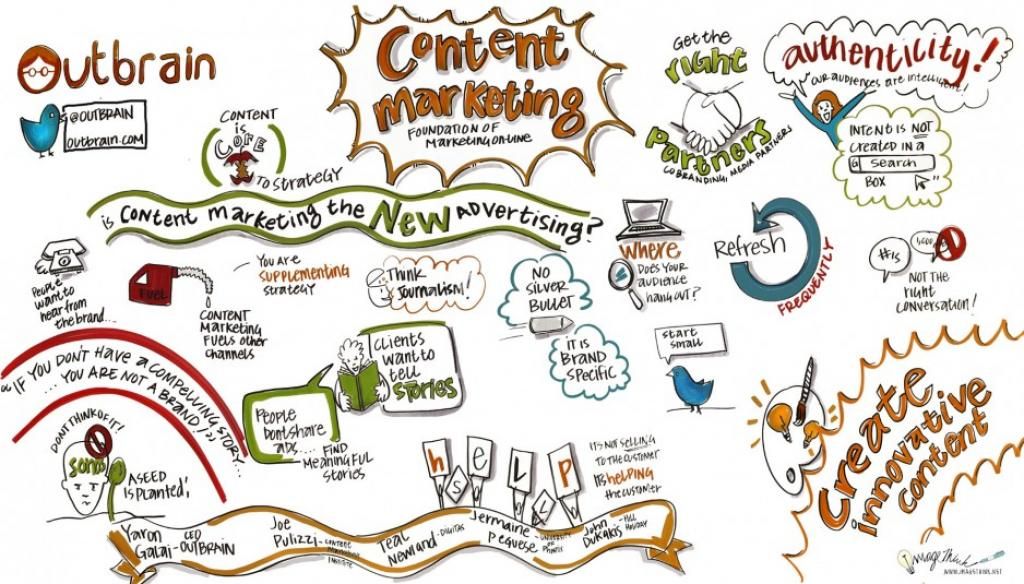 Outbrain
@OUTBRAIN
outbrain.com
CONTENT
is
CORE
TO STRATEGY
Content
marketing
FOUNDATION OF
MARKETING ON-LINE
Get the
right
Partners
CO BRANDING, MEDIA PARTNERS
authenticity!
OUR AUDIENCES ARE INTELLIGENT!
INTENT IS NOT
CREATED IN A
SEARCH
BOX
is Content marketing the NEW ADVERTISING?
People
want to
hear from
the brand...
FUEL
CONTENT
MARKETING
FUELS other
channels
YOU ARE
SUPPLEMENTING
STRATEGY
Think
Journalism!
NO
SILVER
BULLET
IT IS
BRAND
SPECIFIC
WHERE
DOES YOUR
AUDIENCE
hang out?
Refresh
FREQUENTLY
#IS
NOT THE
RIGHT
CONVERSATION!
IF YOU DON'T HAVE A COMPELLING STORY...
... YOU ARE NOT A BRAND
CLIENTS
WANT to
tell
STORIES
PEOPLE
DON'T SHARE
ADS...
... FIND
MEANINGFUL
STORIES
start
small
DON'T THINK OF IT!
A SEED
IS PLANTED!
h
e
L
P
S
IT'S NOT SELLING
TO THE CUSTOMER
IT'S HELPING
the CUSTOMER
Create
innovative
content
Yaron
Galai
CEO
OUTBRAIN
Joe
Pulizzi
CONTENT
MARKETING
INSTITUTE
Teal
Newland
DIGITAS
Jermaine
Peguese
UNIVERSITY
OF
PHOENIX
John
Dukakis
HILL
HOLIDAY
ImageThink
WWW.IMAGETHINK.NET